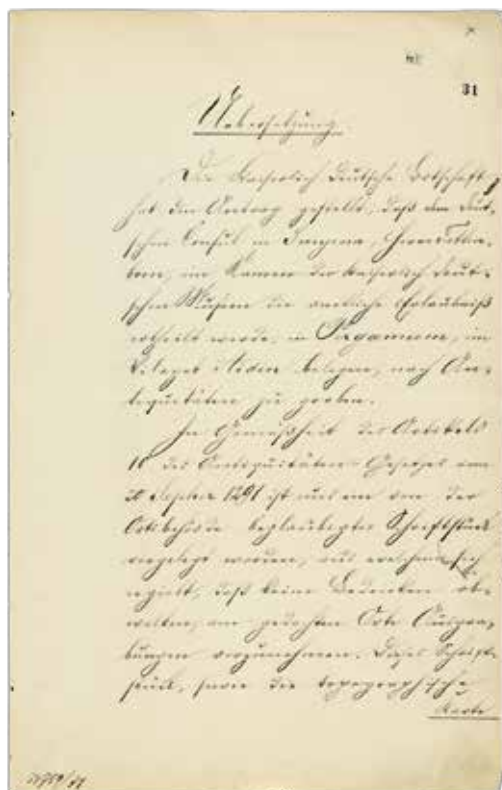 31
Uebersetzung.
Die Kaiserlich Deutsche Botschaft
hat den Antrag gestellt, daß dem Deut-
schen Consul in Smyrna, Herrn
im Namen der Kaiserlich Deut-
schen Museen die amtliche Erlaubniß
ertheilt werde, in Pergamon, im
Vilayet Aidin belegen, nach An-
tiquitäten zu graben.
In Gemäßheit des Artikels
des Antiquitäten-Gesetzes vom
20 1291 ist uns ein von der
Ortsbehörde beglaubigtes Schriftstück
vorgelegt worden, aus welchem sich
ergiebt, daß keine Bedenken ob-
walten, am gedachten Orte Ausgra-
bungen vorzunehmen. Dieses Schrift-
stück, sowie die topographische
Karte